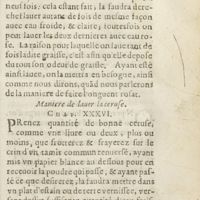 neuf fois; cela estant fait, la faudra dere-
chef lauer autant de fois de mesme façon
auec eau froide, & claire, toutesfois on
peut lauer les deux dernieres auec eau ro-
se. La raison pour laquelle on lauera tant de
fois ladite graisse, c'est afin qu'elle depose
du tout son odeur de graisse, Ayant esté
ainsi lauee, on la mettra en besogne, ainsi
comme nous dirons, quād nous parlerons
de la maniere de faire l'onguent rosat.
Maniere de lauer la ceruse.
CHAP. XXXVI.
PRenez quantité de bonne ceruse,
comme vne liure ou deux, plus ou
moins, que frotterez & frayerez sur le
crin d'vn tamis commun renuersé, ayant
mis vn papier blanc au dessous pour en
receuoir la poudre qui passe, & ayant tout
passé de ceste façon, faudra mettre dans
vn plat d'estain ou de terre vernissee, ver-